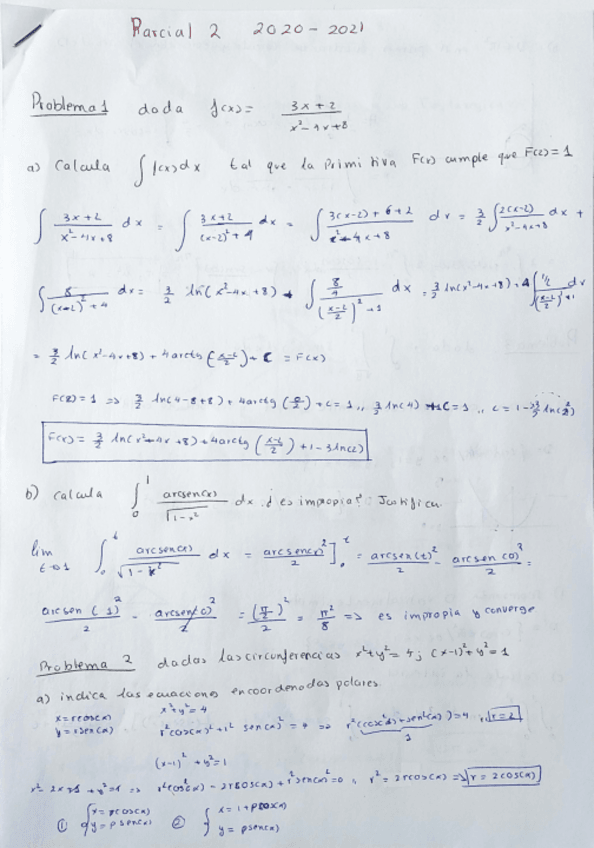 Parcial 2 2020-2021
Problema 1 dada f(x)= (3x+2)/(x²-4x+8)
a) Calcula ∫f(x)dx tal que la primitiva F(x) cumple que F(2)=1
∫ (3x+2)/(x²-4x+8) dx = ∫ (3x+2)/((x-2)²+4) dx = ∫ (3(x-2)+6+2)/(x²-4x+8) dx = 3/2 ∫ 2(x-2)/(x²-4x+8) dx +
∫ 8/((x-2)²+4) dx = 3/2 ln(x²-4x+8) + ∫ (8/4)/(((x-2)/2)²+1) dx = 3/2 ln(x²-4x+8)+4 ∫ (1/2)/(((x-2)/2)²+1) dx
= 3/2 ln(x²-4x+8) + 4 arctg((x-2)/2) + C = F(x)
F(2)=1 => 3/2 ln(4-8+8) + 4arctg(0/2) + C = 1 ,, 3/2 ln(4) + C = 1 ,, C = 1-3/2 ln(2²)
F(x) = 3/2 ln(x²-4x+8) + 4arctg((x-2)/2) + 1 - 3ln(2)
b) calcula ∫₀¹ arcsen(x)/√(1-x²) dx ¿es impropia? Justifica.
lim t→1 ∫₀ᵗ arcsen(x)/√(1-x²) dx = arcsen(x)²/2 ]₀ᵗ = arcsen(t)²/2 - arcsen(0)²/2 =
arcsen(1)²/2 - arcsen(0)²/2 = (π/2)²/2 = π²/8 => es impropia y converge
Problema 2 dadas las circunferencias x²+y²=4; (x-1)²+y²=1
a) indica las ecuaciones en coordenadas polares.
x²+y²=4
x=rcos(α)
y=rsen(α) r²cos(α)²+r² sen(α)²=4 => r²(cos²(α)+sen²(α))=4 , r=2
1
(x-1)²+y²=1
x²-2x+1+y²=1 => r²cos²(α) - 2rcos(α) + r²sen(α)²=0 , r²=2rcos(α) => r=2cos(α)
① { x=ρcos(α) ② { x=1+ρcos(α)
y=ρsen(α) y=ρsen(α)